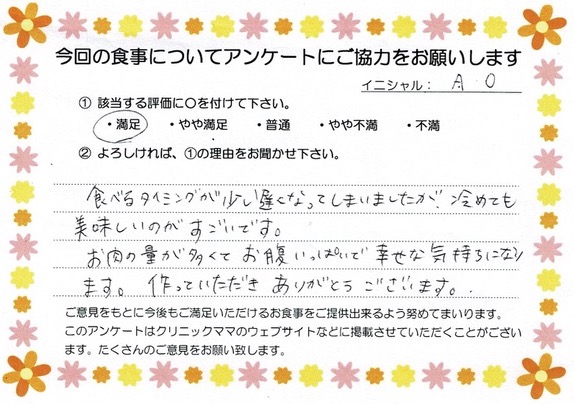 今回の食事についてアンケートにご協力をお願いします
イニシャル： A O
① 該当する評価に○を付けて下さい。
・満足 ・やや満足 ・普通 ・やや不満 ・不満
② よろしければ、①の理由をお聞かせ下さい。
食べるタイミングが少し遅くなってしまいましたが、冷めても
美味しいのがすごいです。
お肉の量が多くてお腹いっぱいで幸せな気持ちになり
ます。作っていただきありがとうございます。
ご意見をもとに今後もご満足いただけるお食事をご提供出来るよう努めてまいります。
このアンケートはクリニックママのウェブサイトなどに掲載させていただくことがござい
ます。たくさんのご意見をお願い致します。